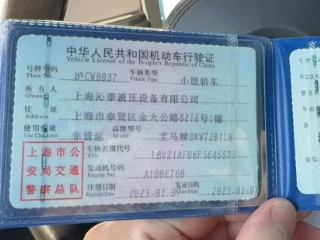 中华人民共和国机动车行驶证
Vehicle License of the People's Republic of China
号牌号码 沪CWB037 车辆类型 小型轿车
Plate No. Vehicle Type
所有人 上海沁泰液压设备有限公司
Owner
住址 上海市奉贤区金大公路8218号1幢
Address
使用性质 非营运 品牌型号 宝马牌
Use Character
上海市公
安局交通
警察总队
车辆识别代号
VIN
发动机号码
Engine No.
注册日期 发证日期
Register Date Issue Date